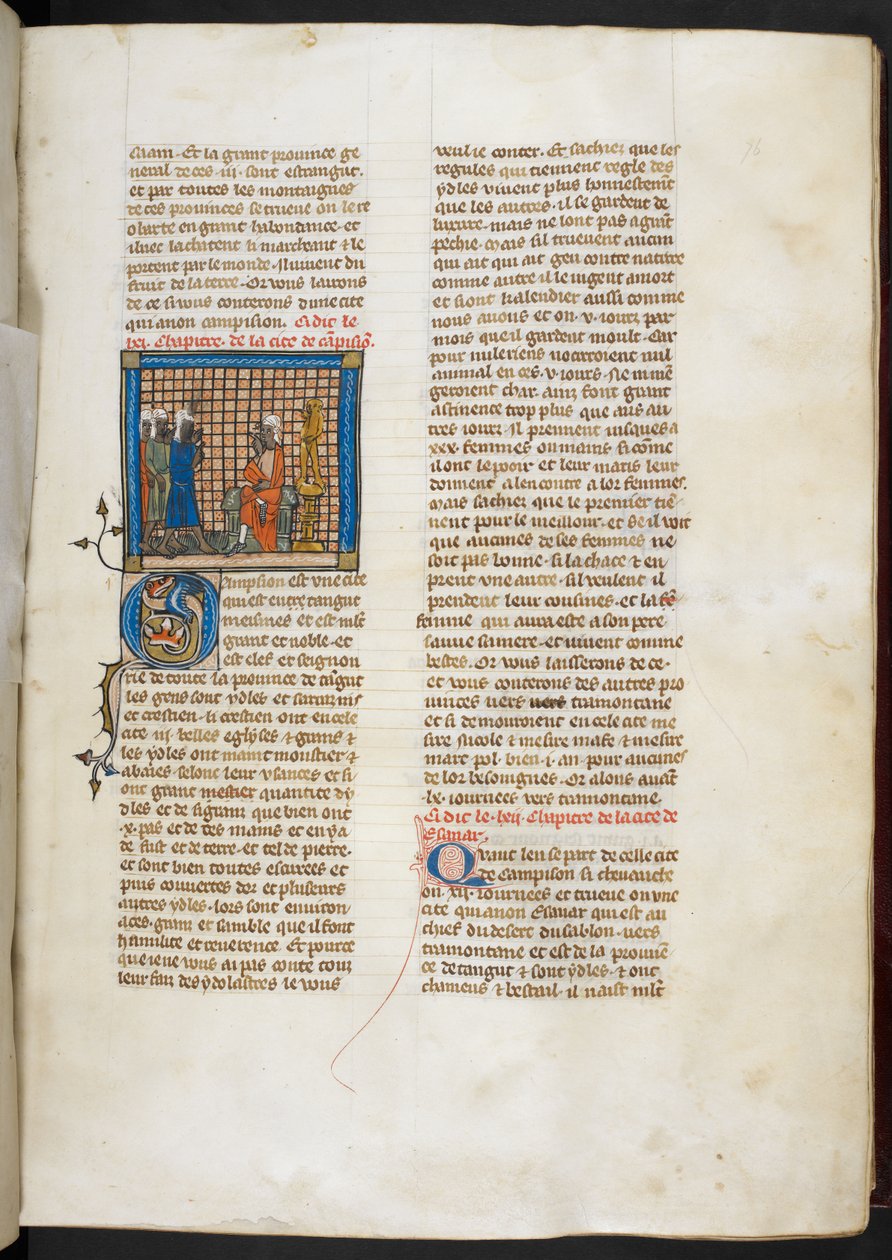 ciam. Et la grant prouince ge
neral de ces .iii. sont estrangut.
et par toutes les montaignes
de ces prouinces se trueue on le re
obarbe en grant habondance. et
iluec lachatent li marcheant ⁊ le
portent par le monde. Il uiuent du
fruit de la terre. Or vous lairons
de ce si vous conterons dune cite
qui a non campision. Ci dit le
lxi. Chapitre. de la cite de cãpisiõ.
Campsion est vne cite
qui est entre tangut
meismes et est mlt
grant et noble. et
est cles et seignou
rie de toute la prouince de tãgut
les gens sont ydles et sarrazins
et crestien. li crestien ont en cele
cite .iii. belles eglyses ⁊ grans ⁊
les ydles ont maint moustier ⁊
abaies selonc leur vsances et si
ont grant mestier quantite dy
dles et de si grant que bien ont
.x. pas et de tes mains et en y a
de fust et de terre. et tel de pierre.
et sont bien toutes escurees et
puis couuertes dor et pluseurs
autres ydles. lors sont enuiron
aces. grant et samble que il font
humilite et reuerence. Et pource
que ie ne vous ai pas conte touz
leur faiz des ydolastres ie vous
76
veul ie conter. Et sachiez que les
regules qui tiennent regle des
ydles viuent plus honnestemẽt
que les autres. il se gardent de
luxure. mais ne lont pas a grãt
pechie. Mais sil trueuent aucun
qui ait qui ait geu contre nature
comme autre il le iugent a mort
et si ont kalendier aussi comme
nous auons et on .v. iours par
mois que il gardent moult. Car
pour nule riens nocirroient nul
animal en ces .v. iours. Ne ni mẽ
geroient char. ainz font grant
astinence trop plus que aus au
tres iours. Il prennent iusques a
xxx. femmes ou mains si cõme
il ont le pooir et leur maris leur
donnent a lencontre a lor femmes.
Mais sachiez que le premier tiẽ
nent pour le meillour. et se il voit
que aucunes de ses femmes ne
soit pas bonne. si la chace ⁊ en
prent vne autre. sil veulent il
prendent leur cousines. et la fẽ
femme qui aura este a son pere.
sauue sa mere. et viuent comme
bestes. Or vous laisserons de ce.
et vous conterons des autres pro
uinces uers uers tramontane
et si demouroient en cele cite me
sire Nicole ⁊ mesire mafe ⁊ mesire
marc pol. bien .i. an. pour aucunes
de lor besoignes. Or alons auãt
.lx. iournees vers tramontane.
Ci dit le .lxii. Chapitre de la cite de
Esanar.
Quant len se part de celle cite
de Campison si cheuauche
on .xii. iournees et trueue on vne
cite qui a non Esanar qui est au
chief du desert du sablon. vers
tramontane et est de la prouuin
ce de tangut ⁊ sont ydles. ⁊ ont
chameus ⁊ bestail. il naist mlt